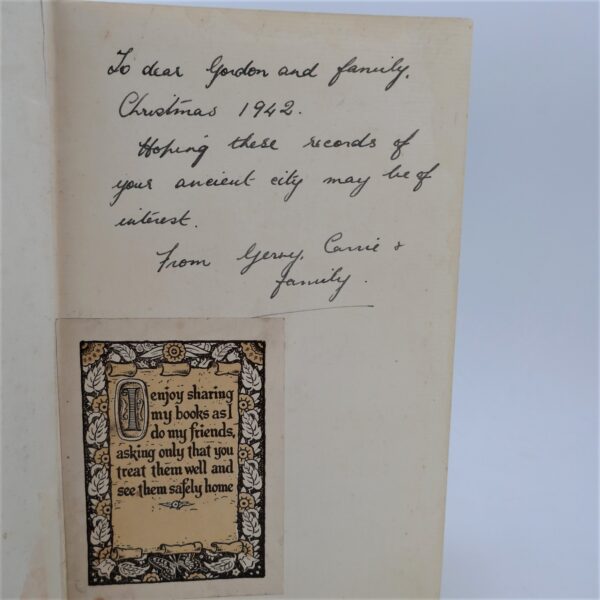 To dear Gordon and family.
Christmas 1942.
Hoping these records of
your ancient city may be of
interest.
From Gerry, Carrie &
family.
I enjoy sharing
my books as I
do my friends,
asking only that you
treat them well and
see them safely home